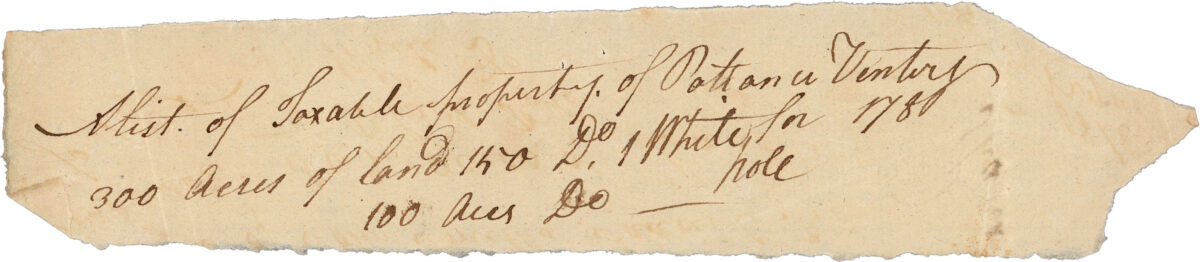 A list. of Taxable property. of Pattance Venters
300 Acres of land 150 Do. 1 White for 1780
100 Acrs Do — pole